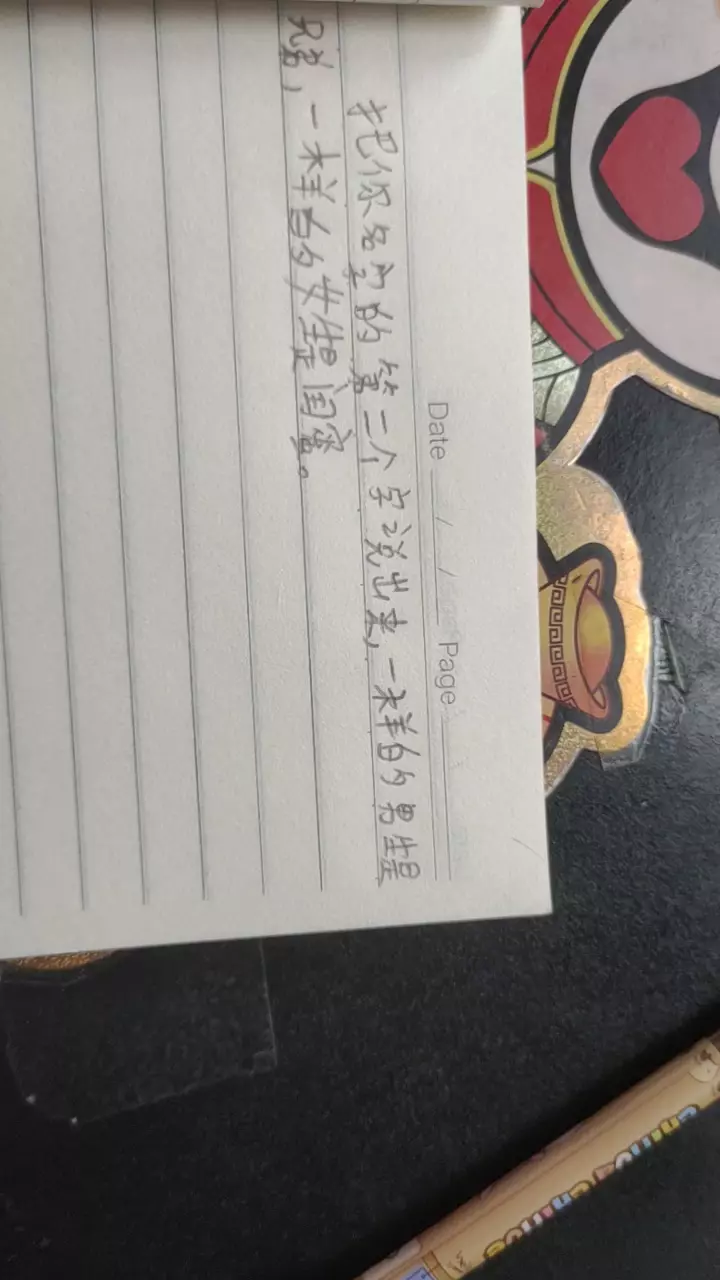 Date / / Page
把你名字的第二个字说出来,一样的男生是
兄弟,一样的女生是闺蜜。